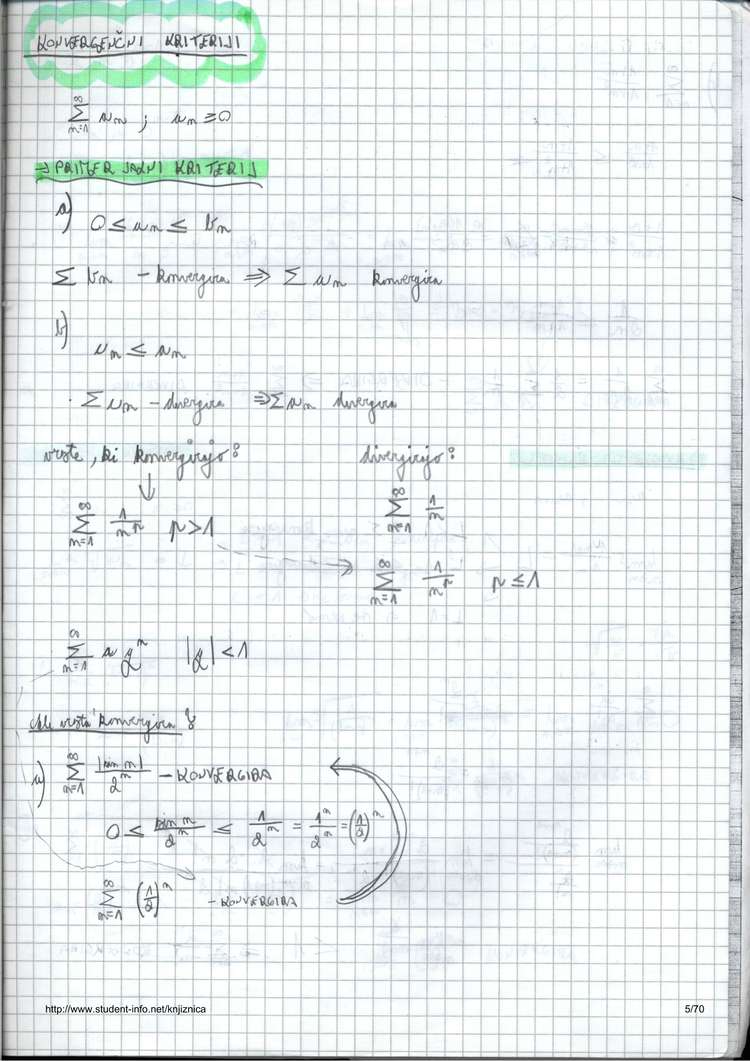 KONVERGENČNI KRITERIJI
∑_{n=1}^{∞} a_n ; a_n ≥ 0
→ PRIMERJALNI KRITERIJ
a) 0 ≤ a_n ≤ b_n
∑ b_n – konvergira ⇒ ∑ a_n konvergira
b)
a_n
∑ – divergira ⇒ ∑ a_n divergira
vrste, ki konvergirajo: divergirajo:
∑_{n=1}^{∞} 1/n^p p > 1 ∑_{n=1}^{∞} 1/n
∑_{n=1}^{∞} 1/n^p p ≤ 1
∑_{n=1}^{∞} a q^n |q| < 1
Ali vrsta konvergira?
a) ∑_{n=1}^{∞} |sin n|/2^n – KONVERGIRA
0 ≤ sin n/2^n ≤ 1/2^n = 1^n/2^n = (1/2)^n
∑_{n=1}^{∞} (1/2)^n – KONVERGIRA
http://www.student-info.net/knjiznica 5/70